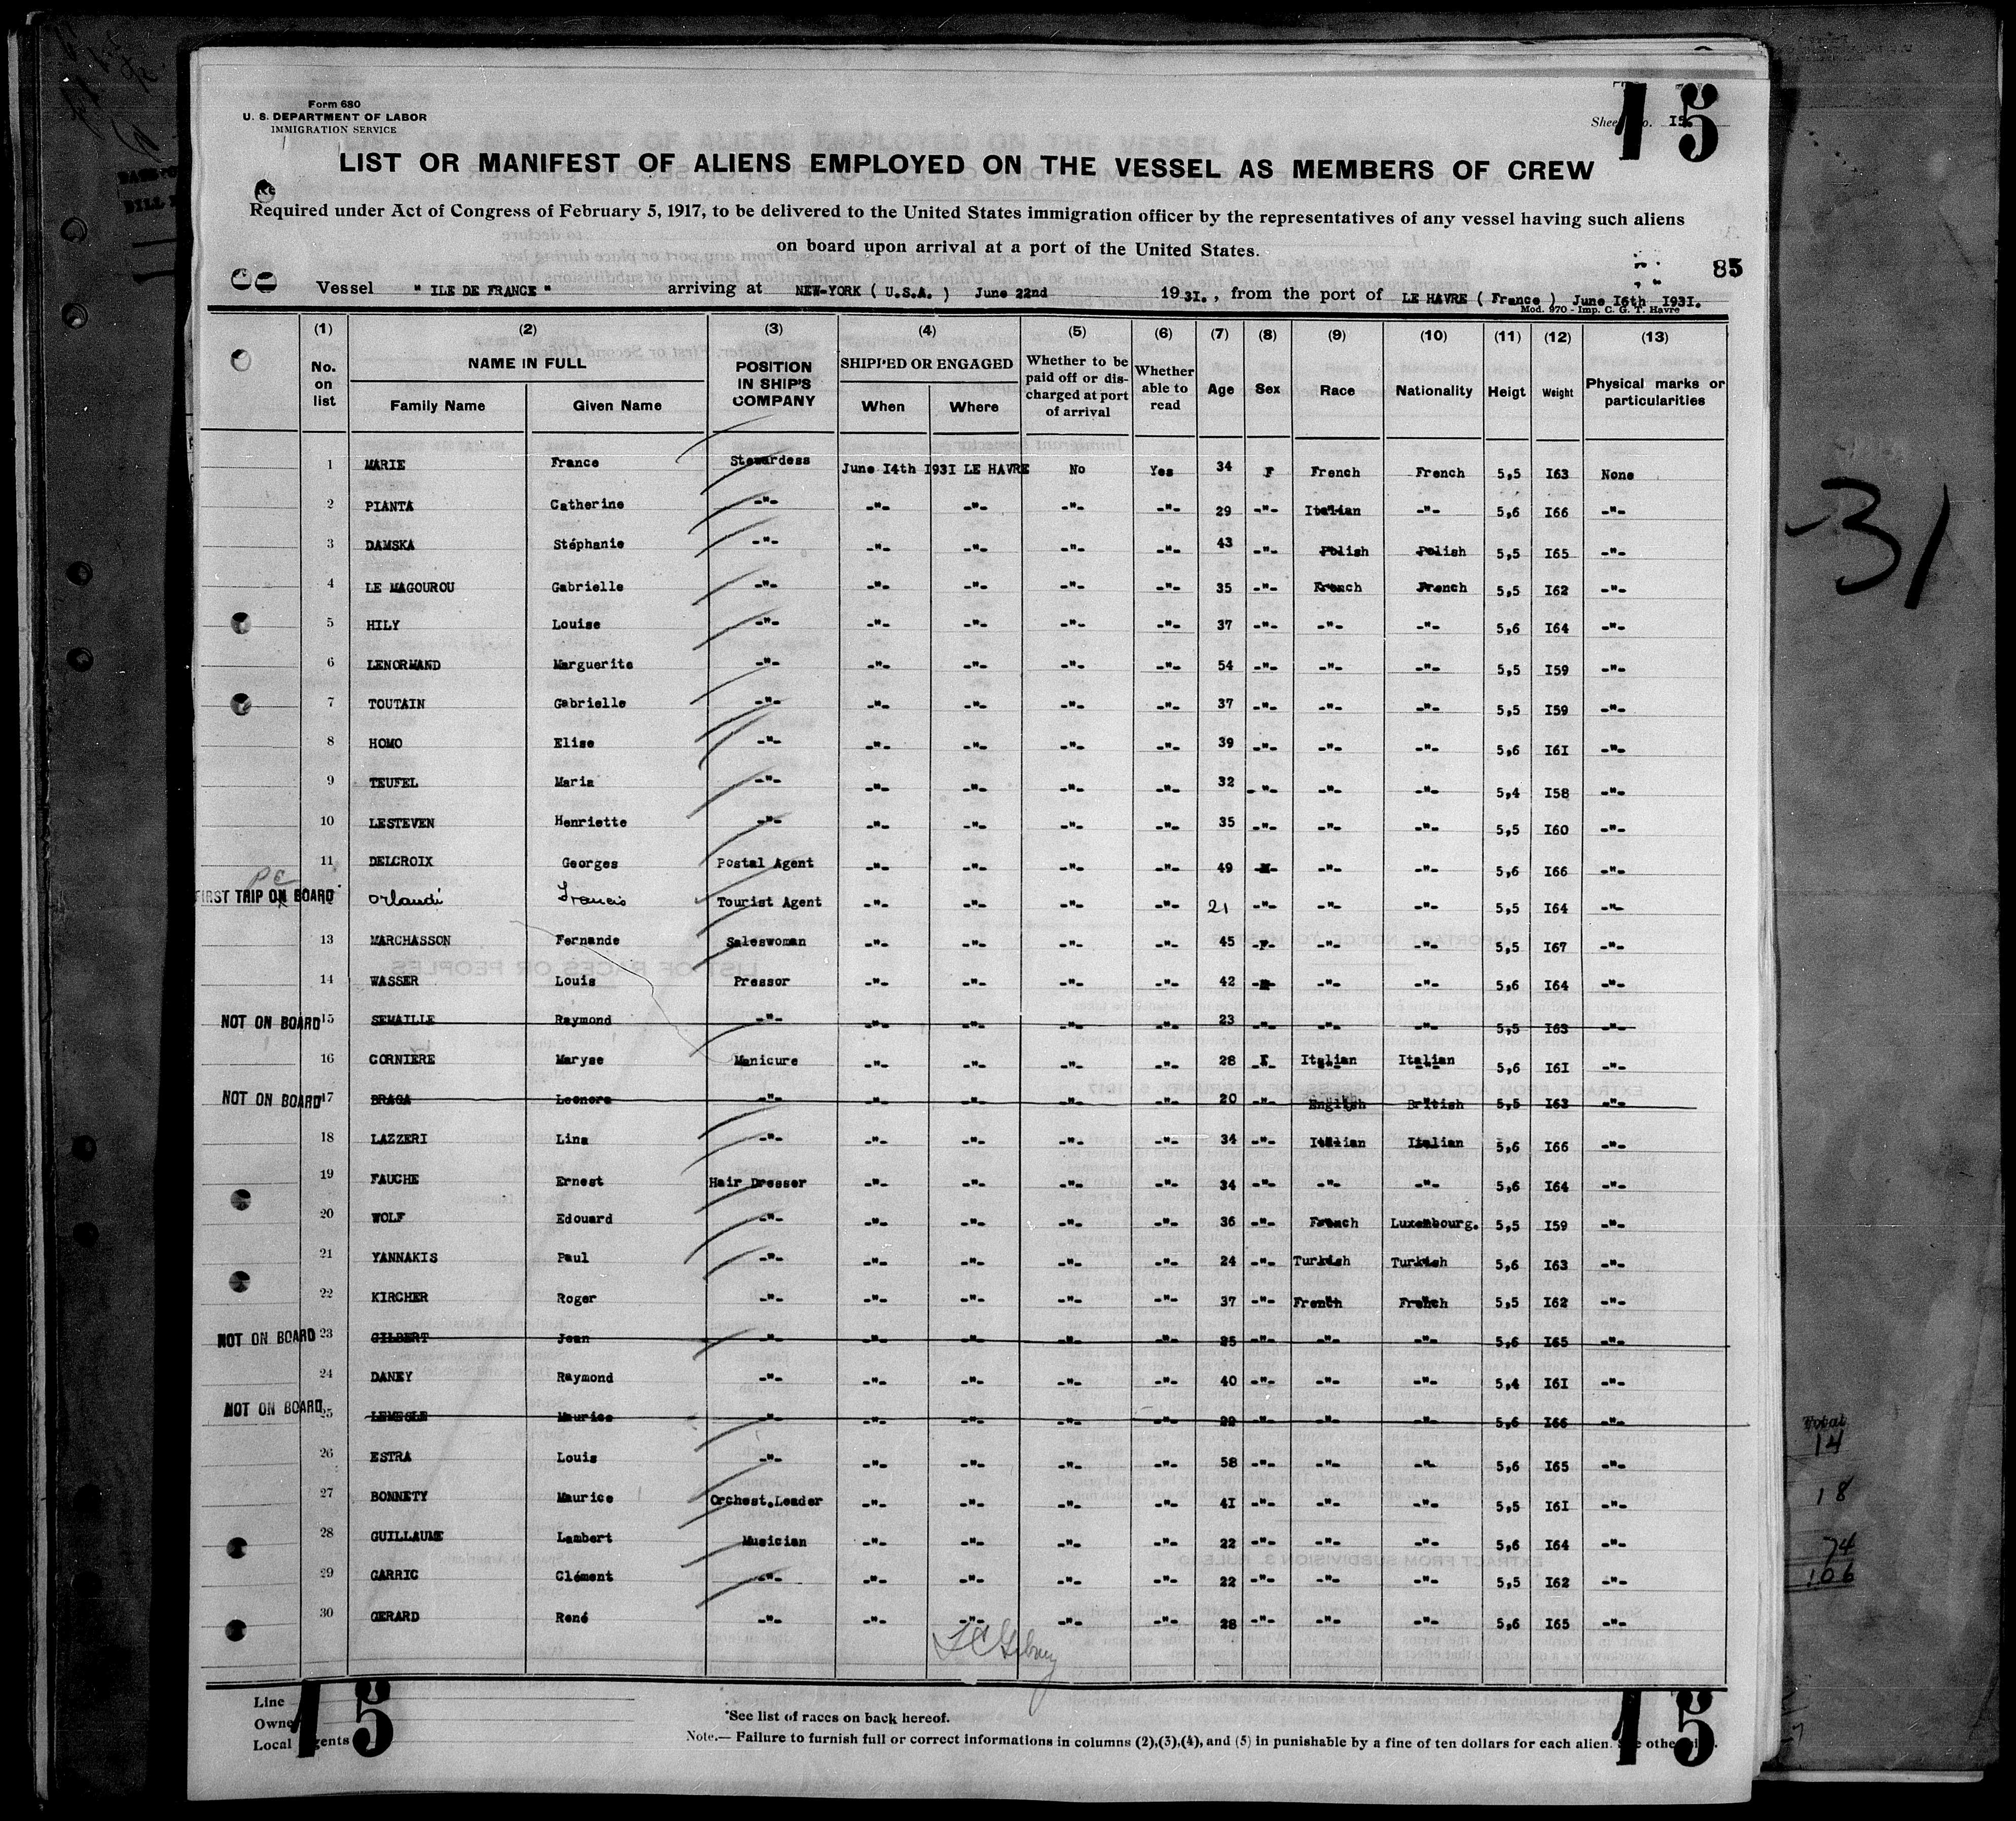 Form 680
U. S. DEPARTMENT OF LABOR
IMMIGRATION SERVICE
Sheet No. I5.
15
LIST OR MANIFEST OF ALIENS EMPLOYED ON THE VESSEL AS MEMBERS OF CREW
Required under Act of Congress of February 5, 1917, to be delivered to the United States immigration officer by the representatives of any vessel having such aliens
on board upon arrival at a port of the United States.
85
Vessel " ILE DE FRANCE " arriving at NEW-YORK ( U.S.A. ) June 22nd 19 3I. , from the port of LE HAVRE ( France ) June I6th I93I.
Mod. 970 - Imp. C. G. T. Havre
(1) (2) (3) (4) (5) (6) (7) (8) (9) (10) (11) (12) (13)
No. on list NAME IN FULL Family Name Given Name POSITION IN SHIP'S COMPANY SHIPPED OR ENGAGED When Where Whether to be paid off or discharged at port of arrival Whether able to read Age Sex Race Nationality Heigt Weight Physical marks or particularities
1 MARIE France Stewardess June I4th I93I LE HAVRE No Yes 34 F French French 5,5 I63 None
2 PIANTA Catherine -"- -"- -"- -"- -"- 29 -"- Italian -"- 5,6 I66 -"-
3 DAMSKA Stéphanie -"- -"- -"- -"- -"- 43 -"- Polish Polish 5,5 I65 -"-
4 LE MAGOUROU Gabrielle -"- -"- -"- -"- -"- 35 -"- French French 5,5 I62 -"-
5 HILY Louise -"- -"- -"- -"- -"- 37 -"- -"- -"- 5,6 I64 -"-
6 LENORMAND Marguerite -"- -"- -"- -"- -"- 54 -"- -"- -"- 5,5 I59 -"-
7 TOUTAIN Gabrielle -"- -"- -"- -"- -"- 37 -"- -"- -"- 5,5 I59 -"-
8 HOMO Elise -"- -"- -"- -"- -"- 39 -"- -"- -"- 5,6 I6I -"-
9 TEUFEL Maria -"- -"- -"- -"- -"- 32 -"- -"- -"- 5,4 I58 -"-
10 LESTEVEN Henriette -"- -"- -"- -"- -"- 35 -"- -"- -"- 5,5 I60 -"-
11 DELCROIX Georges Postal Agent -"- -"- -"- -"- 49 -M- -"- -"- 5,6 I66 -"-
FIRST TRIP ON BOARD Orlandi Francis Tourist Agent -"- -"- -"- -"- 21 -"- -"- -"- 5,5 I64 -"-
13 MARCHASSON Fernande Saleswoman -"- -"- -"- -"- 45 -F- -"- -"- 5,5 I67 -"-
14 WASSER Louis Pressor -"- -"- -"- -"- 42 -M- -"- -"- 5,6 I64 -"-
NOT ON BOARD 15 SEMAILLE Raymond -"- -"- -"- -"- -"- 23 -"- -"- -"- 5,5 I63 -"-
16 CORNIERE Maryse Manicure -"- -"- -"- -"- 28 F Italian Italian 5,6 I6I -"-
NOT ON BOARD 17 BRAGA Leonora -"- -"- -"- -"- -"- 20 -"- English British 5,5 I63 -"-
18 LAZZERI Lina -"- -"- -"- -"- -"- 34 -"- Italian Italian 5,6 I66 -"-
19 FAUCHE Ernest Hair Dresser -"- -"- -"- -"- 34 -"- -"- -"- 5,6 I64 -"-
20 WOLF Edouard -"- -"- -"- -"- -"- 36 -"- French Luxembourg. 5,5 I59 -"-
21 YANNAKIS Paul -"- -"- -"- -"- -"- 24 -"- Turkish Turkish 5,6 I63 -"-
22 KIRCHER Roger -"- -"- -"- -"- -"- 37 -"- French French 5,5 I62 -"-
NOT ON BOARD 23 GILBERT Jean -"- -"- -"- -"- -"- 25 -"- -"- -"- 5,6 I65 -"-
24 DANEY Raymond -"- -"- -"- -"- -"- 40 -"- -"- -"- 5,4 I6I -"-
NOT ON BOARD 25 LEMESLE Maurice -"- -"- -"- -"- -"- -"- -"- -"- 5,6 I66 -"-
26 ESTRA Louis -"- -"- -"- -"- -"- 58 -"- -"- -"- 5,6 I65 -"-
27 BONNETY Maurice Orchest.Leader -"- -"- -"- -"- 4I -"- -"- -"- 5,5 I6I -"-
28 GUILLAUME Lambert Musician -"- -"- -"- -"- 22 -"- -"- -"- 5,6 I64 -"-
29 GARRIC Clément -"- -"- -"- -"- -"- 22 -"- -"- -"- 5,5 I62 -"-
30 GERARD René -"- -"- -"- -"- -"- 28 -"- -"- -"- 5,6 I65 -"-
Line
Owner
Local Agents
15
*See list of races on back hereof.
Note.— Failure to furnish full or correct informations in columns (2),(3),(4), and (5) in punishable by a fine of ten dollars for each alien.
15
31
Total
14
18
74
106